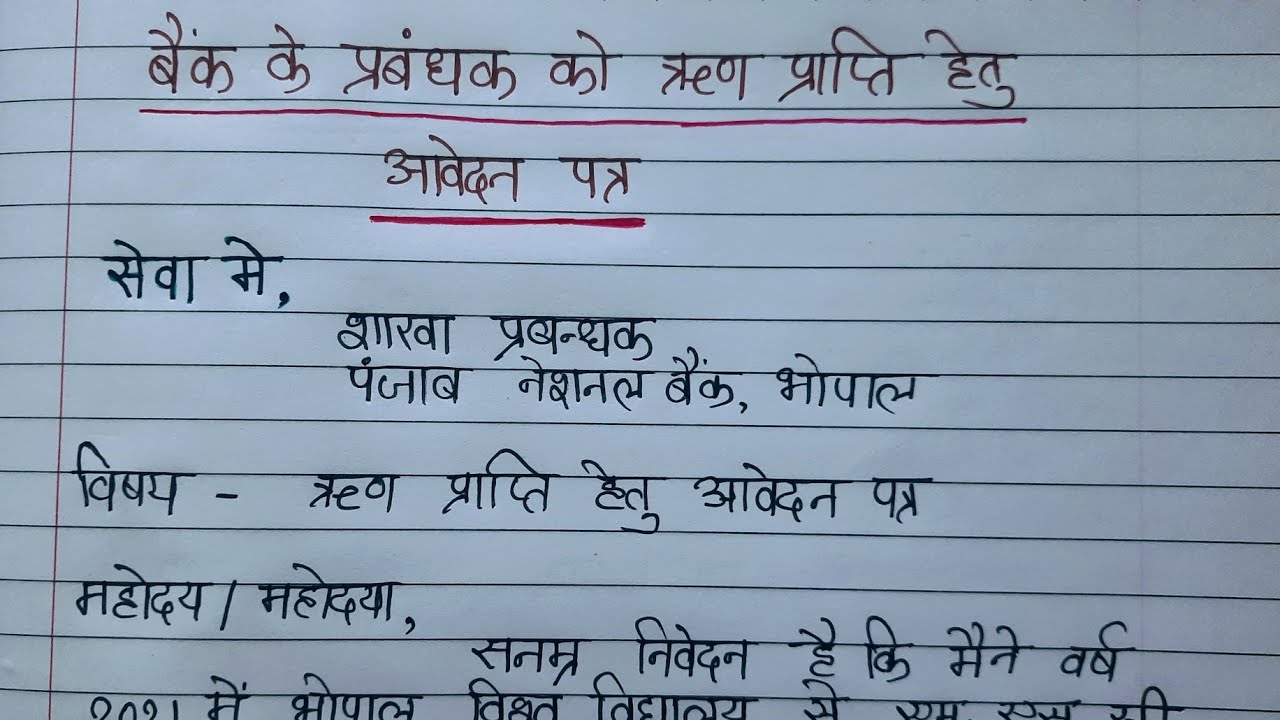 बैंक के प्रबंधक को ऋण प्राप्ति हेतु
आवेदन पत्र
सेवा मे,
शाखा प्रबन्धक
पंजाब नेशनल बैंक, भोपाल
विषय - ऋण प्राप्ति हेतु आवेदन पत्र
महोदय / महोदया,
सनम्र निवेदन है कि मैने वर्ष
2021 में भोपाल विश्व विद्यालय से एम. एस. सी